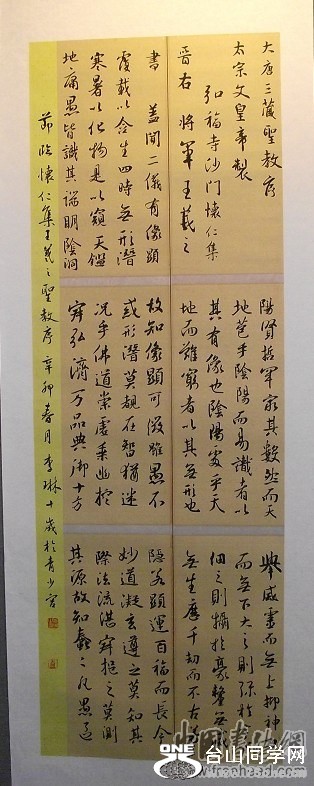 大唐三藏聖教序
太宗文皇帝製
弘福寺沙門懷仁集
晉右將軍王羲之
書 蓋聞二儀有像顯
覆載以含生四時無形潛
寒暑以化物是以窺天鑑
地庸愚皆識其端明陰洞
陽賢哲罕窮其數然而天
地苞乎陰陽而易識者以
其有像也陰陽處乎天
地而難窮者以其無形也
故知像顯可徵雖愚不
惑形潛莫覩在智猶迷
況乎佛道崇虛乘幽控
寂弘濟万品典御十方
舉威靈而無上抑神
而無下大之則彌於
細之則攝於毫釐無滅
無生歷千劫而不古若
隱若顯運百福而長今
妙道凝玄遵之莫知其
際法流湛寂挹之莫測
其源故知蠢蠢凡愚區
節臨懷仁集王羲之聖教序辛卯春月李琳十歲於青少宮
ONE
台山同学网